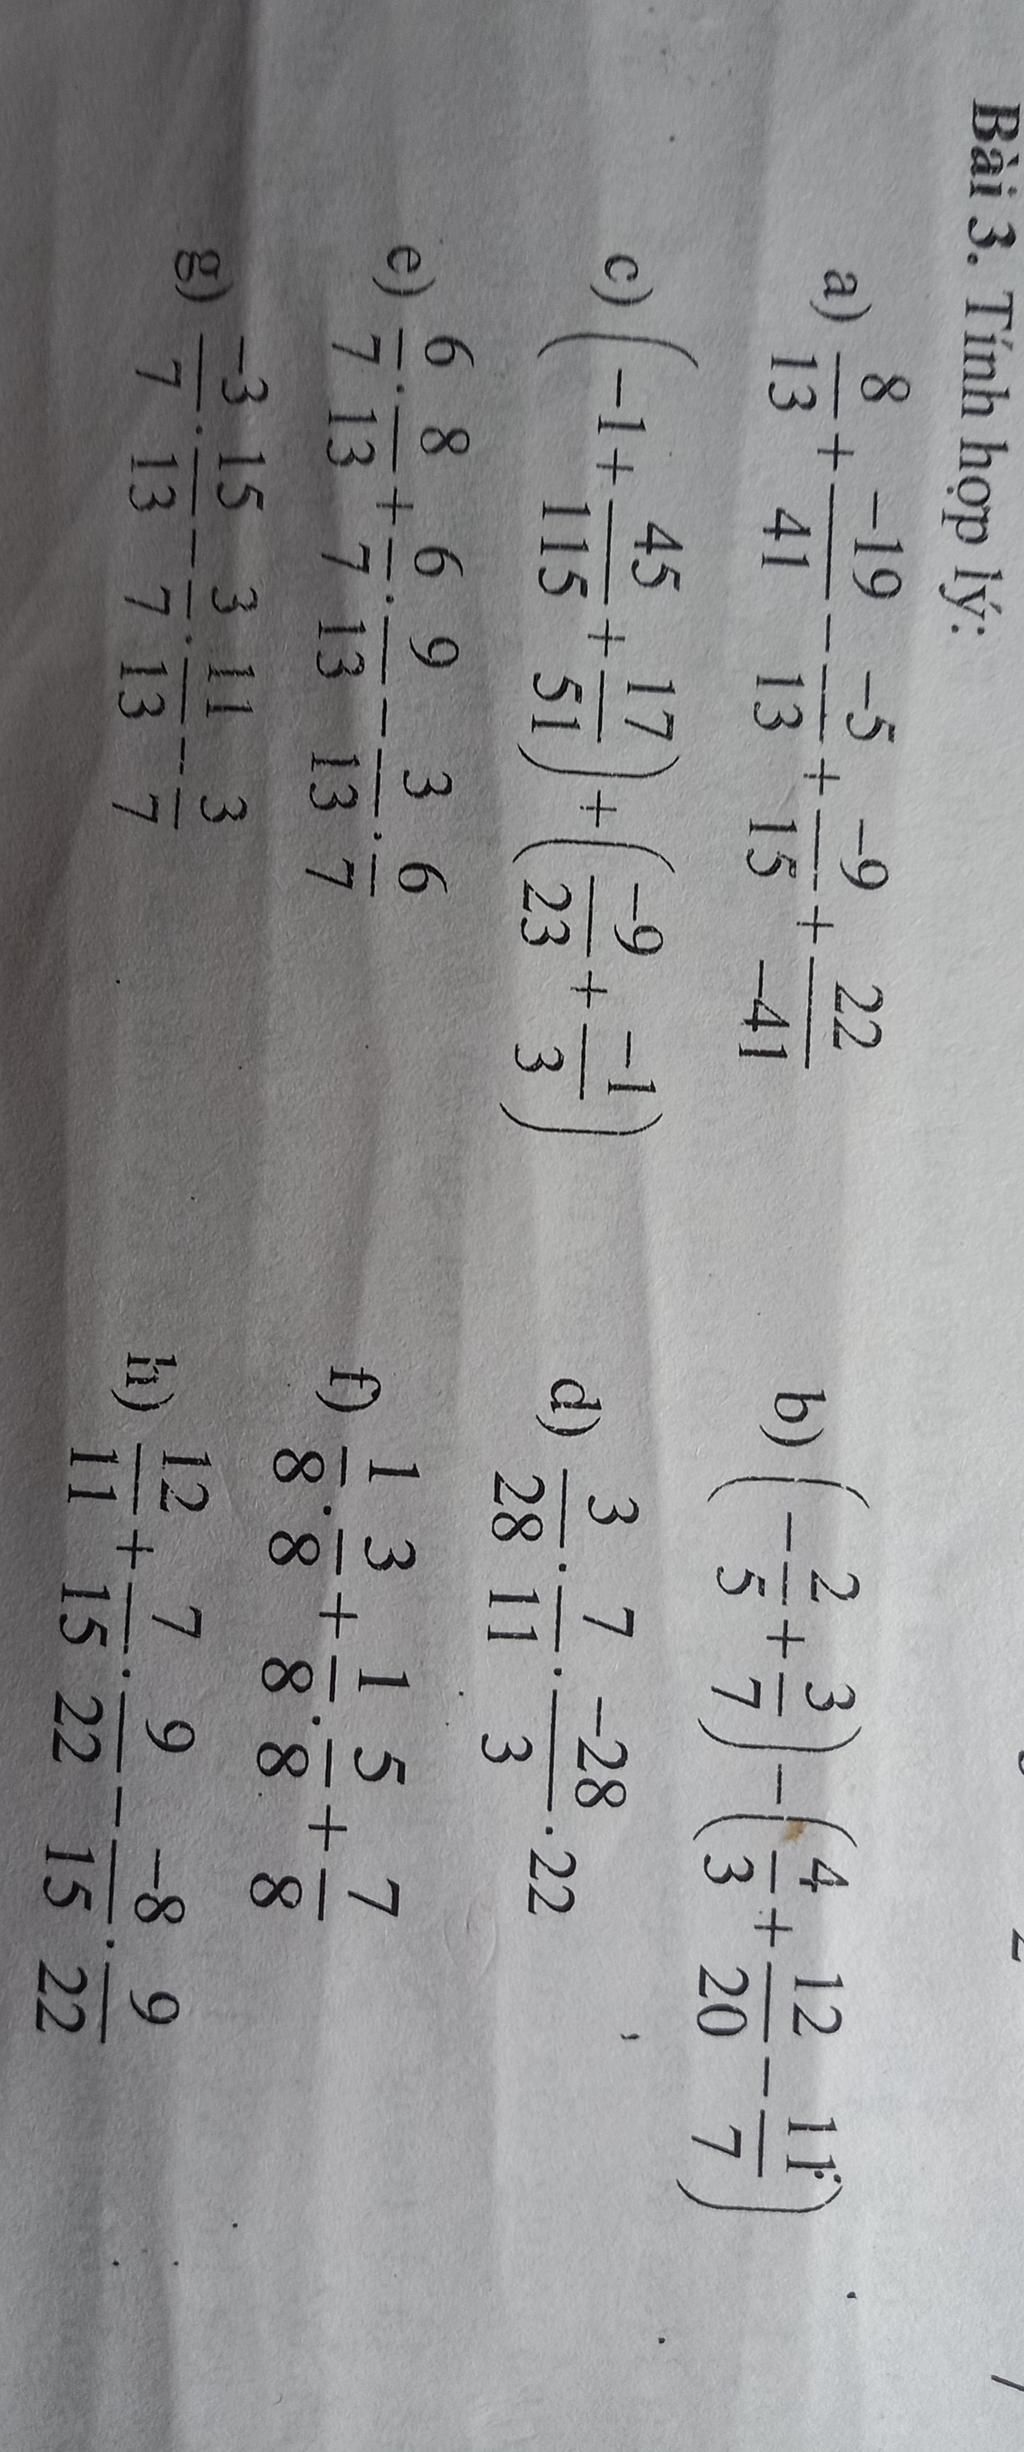 Bài 3. Tính hợp lý:
a) 8/13 + -19/41 - -5/13 + -9/15 + 22/-41
b) (-2/5 + 3/7) - (4/3 + 12/20 - 11/7)
c) (-1 + 45/115 + 17/51) + (-9/23 + -1/3)
d) 3/28 . 7/11 . -28/3 . 22
e) 6/7 . 8/13 + 6/7 . 9/13 - 3/13 . 6/7
f) 1/8 . 3/8 + 1/8 . 5/8 + 7/8
g) -3/7 . 15/13 - 3/7 . 11/13 - 3/7
h) 12/11 + 7/15 . 9/22 - -8/15 . 9/22